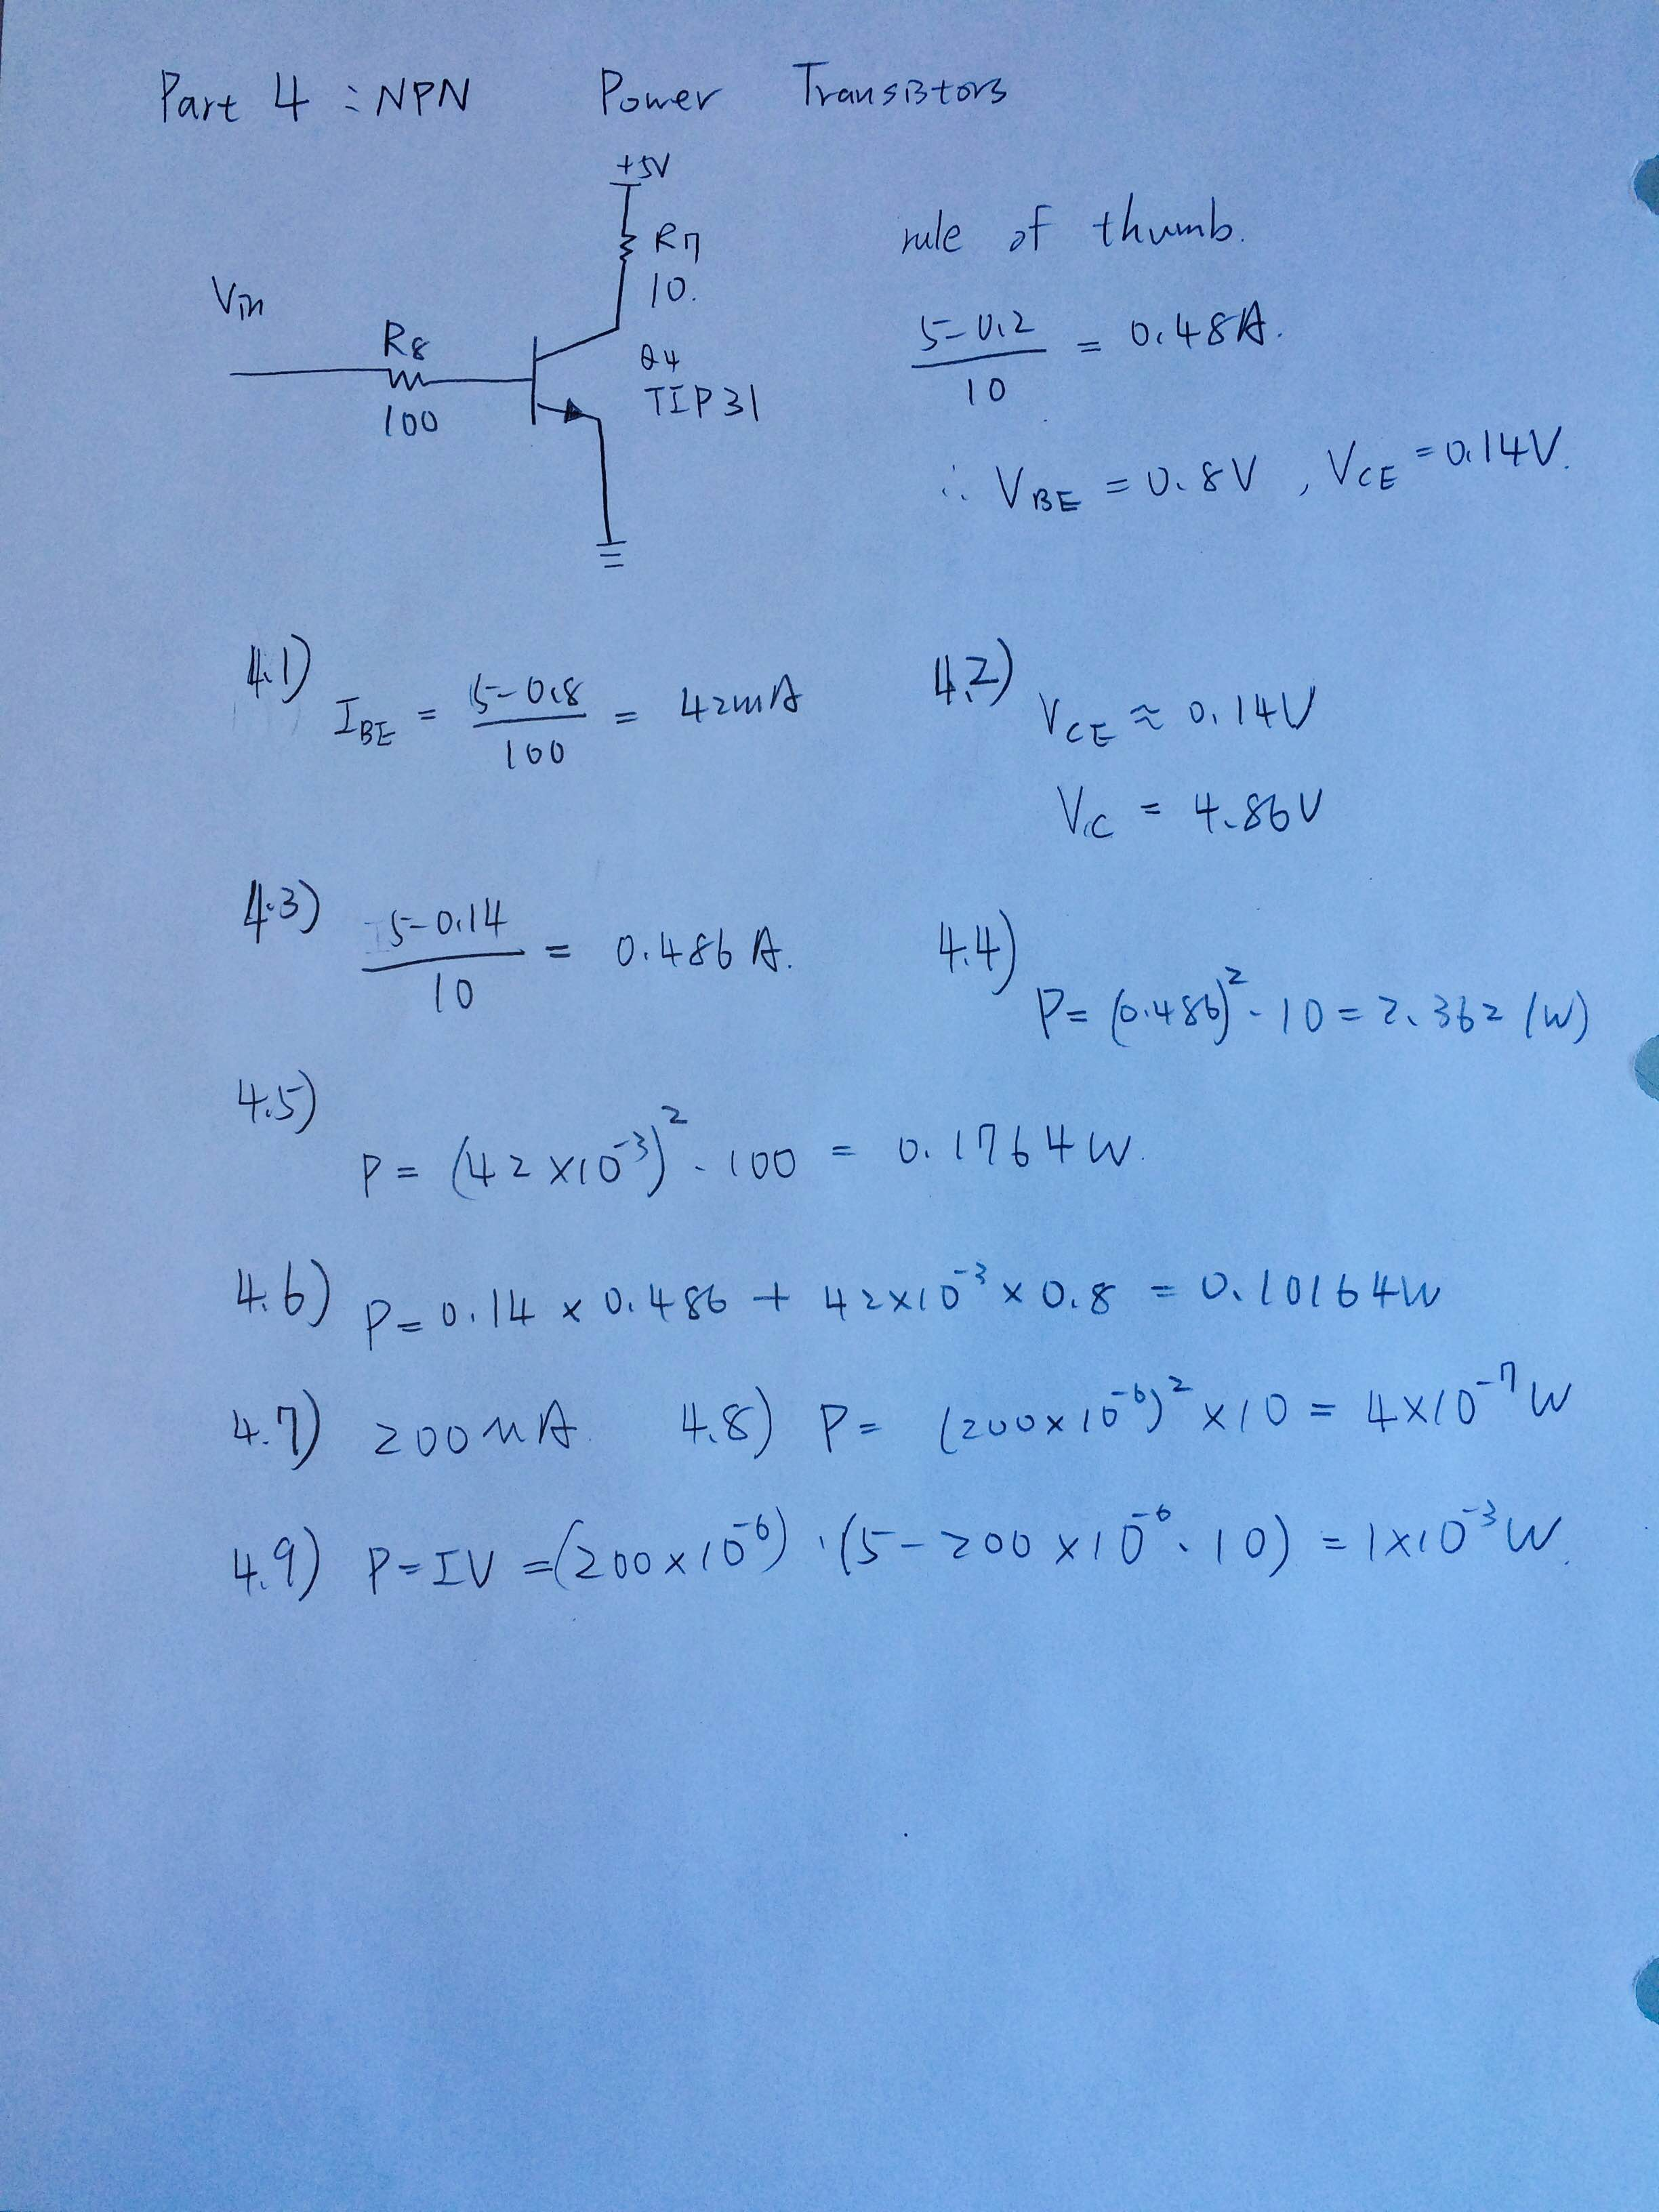 Part 4 : NPN Power Transistors
+5V
R7
10.
Vin
R8
100
Q4
TIP31
rule of thumb.
5-0.2
10
= 0.48A.
∴ VBE = 0.8V , VCE = 0.14V.
4.1) IBE = 5-0.8 / 100 = 42mA
4.2) VCE ≈ 0.14V
VC = 4.86V
4.3) 5-0.14 / 10 = 0.486 A.
4.4) P = (0.486)² · 10 = 2.362 (W)
4.5) P = (42 ×10⁻³)² · 100 = 0.1764 W.
4.6) P = 0.14 × 0.486 + 42×10⁻³ × 0.8 = 0.10164W
4.7) 200 μA. 4.8) P = (200×10⁻⁶)² ×10 = 4×10⁻⁷ W
4.9) P=IV =(200×10⁻⁶) · (5 - 200 ×10⁻⁶ · 10) = 1×10⁻³ W.